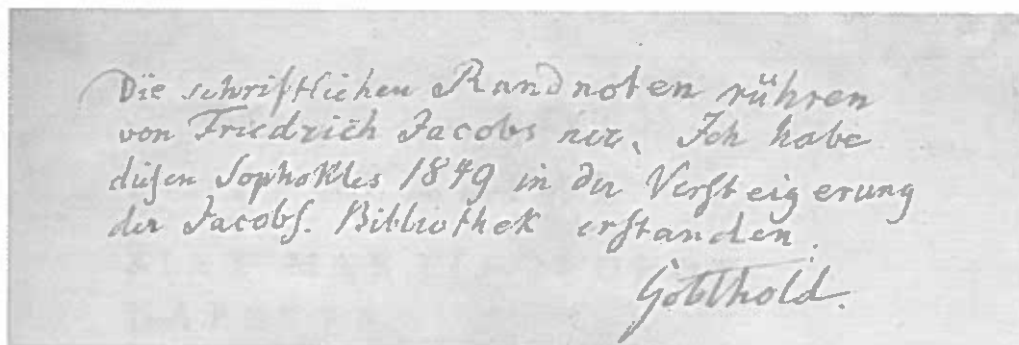 Die schriftlichen Randnoten rühren
von Friedrich Jacobs her. Ich habe
diesen Sophokles 1849 in der Versteigerung
der Jacobs. Bibliothek erstanden.
Gotthold.